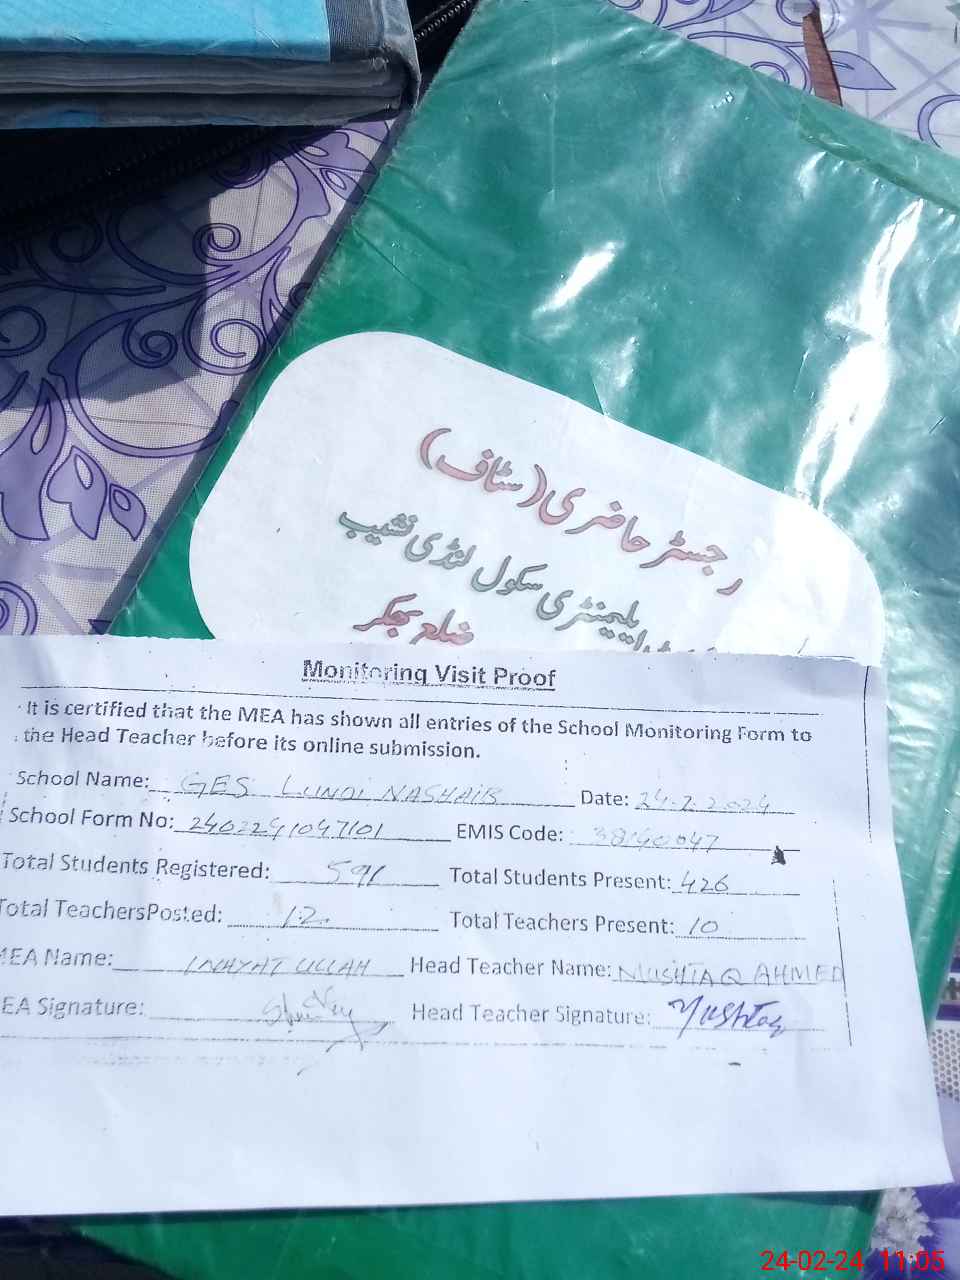 رجسٹر حاضری (سٹاف)
ایلیمنٹری سکول لنڈی نشیب
ضلع بھکر
Monitoring Visit Proof
It is certified that the MEA has shown all entries of the School Monitoring Form to
the Head Teacher before its online submission.
School Name: GES LUNDI NASHAIB Date: 24.2.2024
School Form No: 2402241047101 EMIS Code: 38140047
Total Students Registered: 591 Total Students Present: 426
Total TeachersPosted: 12 Total Teachers Present: 10
MEA Name: INAYAT ULLAH Head Teacher Name: MUSHTAQ AHMED
EA Signature: Head Teacher Signature: Mushtaq
24-02-24 11:05